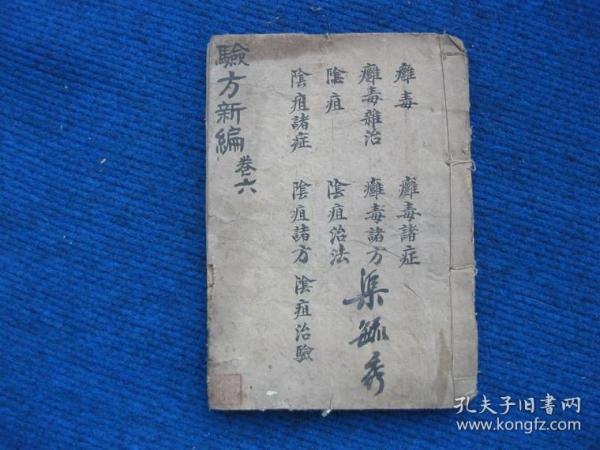 驗方新編 卷六
癰毒 癰毒諸症
癰毒雜治 癰毒諸方
陰疽 陰疽治法
陰疽諸症 陰疽諸方 陰疽治驗
渠毓秀
孔夫子旧书网
www.kongfz.com